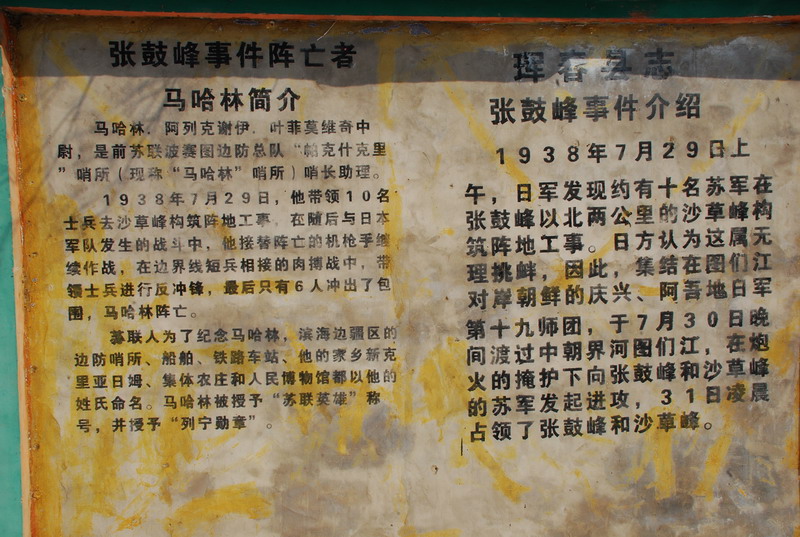 张鼓峰事件阵亡者
马哈林简介
马哈林．阿列克谢伊．叶菲莫维奇中
尉，是前苏联波赛图边防总队“帕克什克里
”哨所（现称“马哈林”哨所）哨长助理。
1938年7月29日，他带领10名
士兵去沙草峰构筑阵地工事．在随后与日本
军队发生的战斗中，他接替阵亡的机枪手继
续作战，在边界线短兵相接的肉搏战中，带
领士兵进行反冲锋，最后只有6人冲出了包
围，马哈林阵亡。
苏联人为了纪念马哈林，滨海边疆区的
边防哨所、船舶、铁路车站、他的家乡新克
里亚日姆、集体农庄和人民博物馆都以他的
姓氏命名。马哈林被授予“苏联英雄”称
号，并授予“列宁勋章”。
珲春县志
张鼓峰事件介绍
1938年7月29日上
午，日军发现约有十名苏军在
张鼓峰以北两公里的沙草峰构
筑阵地工事。日方认为这属无
理挑衅，因此，集结在图们江
对岸朝鲜的庆兴、阿吾地日军
第十九师团，于7月30日晚
间渡过中朝界河图们江，在炮
火的掩护下向张鼓峰和沙草峰
的苏军发起进攻，31日凌晨
占领了张鼓峰和沙草峰。